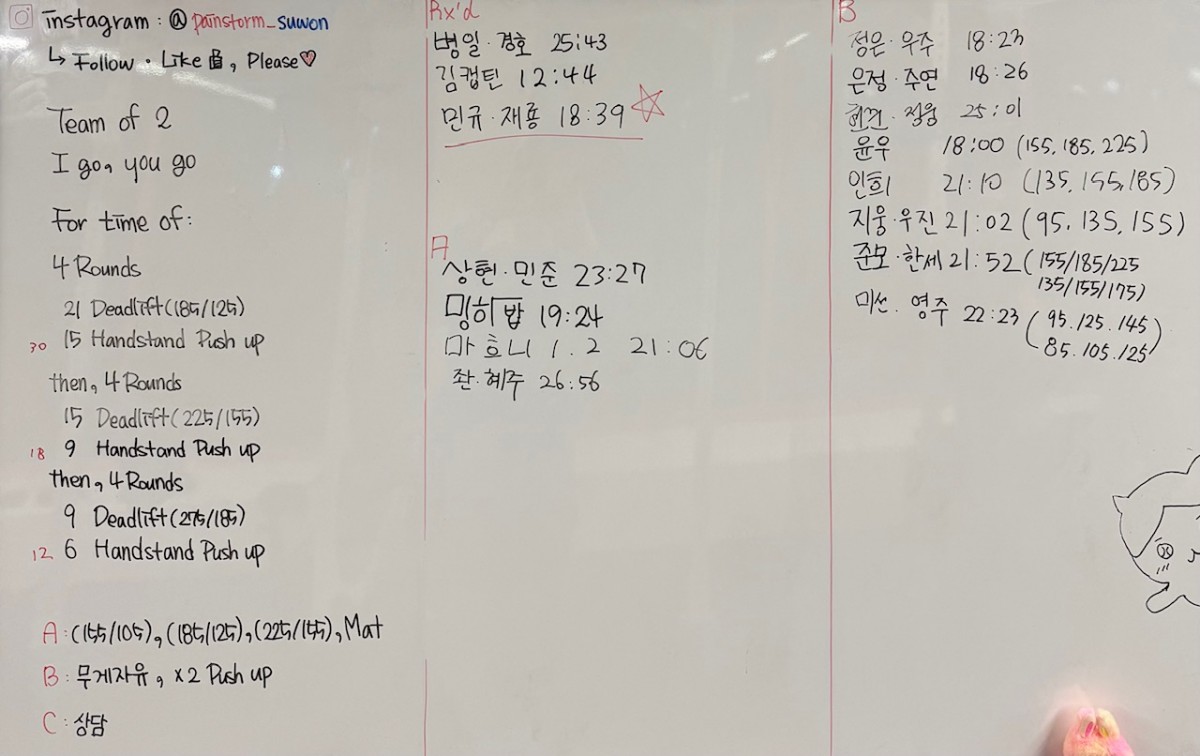 instagram : @painstorm_suwon
↳ Follow · Like 👍, Please♡
Team of 2
I go, you go
For time of:
4 Rounds
21 Deadlift(185/125)
30 15 Handstand Push up
then, 4 Rounds
15 Deadlift(225/155)
18 9 Handstand Push up
then, 4 Rounds
9 Deadlift(275/185)
12 6 Handstand Push up
A : (155/105), (185/125), (225/155), Mat
B : 무게자유, x2 Push up
C : 상담
Rx'd
병일·경호 25:43
김캡틴 12:44
민규·재룡 18:39 ☆
A
상현·민준 23:27
밍히밥 19:24
마효니 1. 2 21:06
좐·혜주 26:56
B
정은·우주 18:23
은정·주연 18:26
정웅 25:01
윤우 18:00 (155, 185, 225)
인희 21:10 (135, 155, 185)
지웅·우진 21:02 (95, 135, 155)
준모·한세 21:52 (155/185/225
135/155/175)
미선. 영주 22:23 (95.125.145
85.105.125)